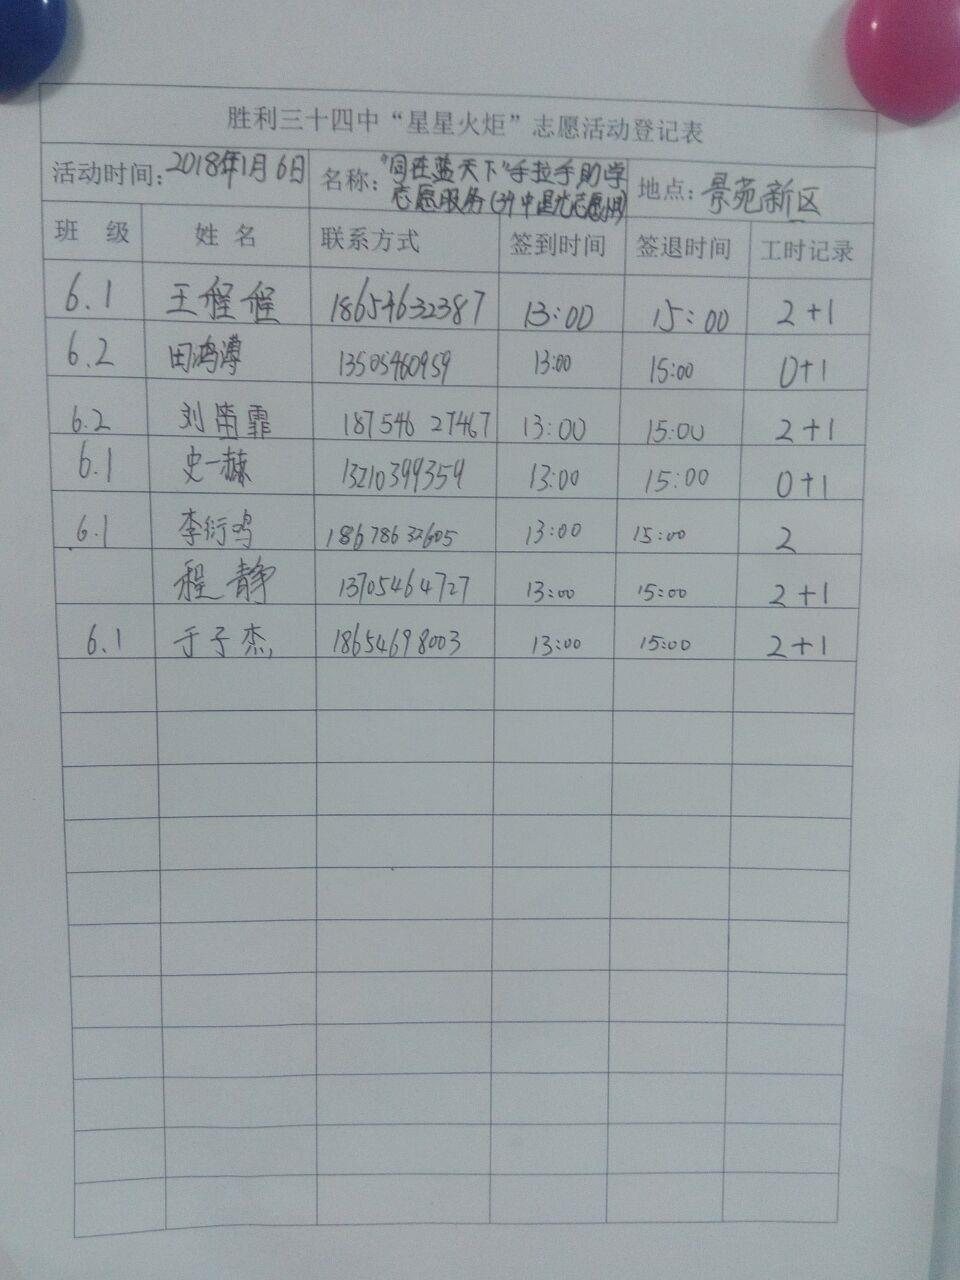 胜利三十四中“星星火炬”志愿活动登记表
活动时间：2018年1月6日 名称：“同在蓝天下”手拉手助学 地点：景苑新区
志愿服务
班 级 姓 名 联系方式 签到时间 签退时间 工时记录
6.1 王程程 18654632387 13:00 15:00 2+1
6.2 田鸿溥 13505460959 13:00 15:00 0+1
6.2 刘霏 187546 27467 13:00 15:00 2+1
6.1 史一赫 13210399359 13:00 15:00 0+1
6.1 李衍鸣 18678632605 13:00 15:00 2
程静 13705464727 13:00 15:00 2+1
6.1 于子杰 18654698003 13:00 15:00 2+1